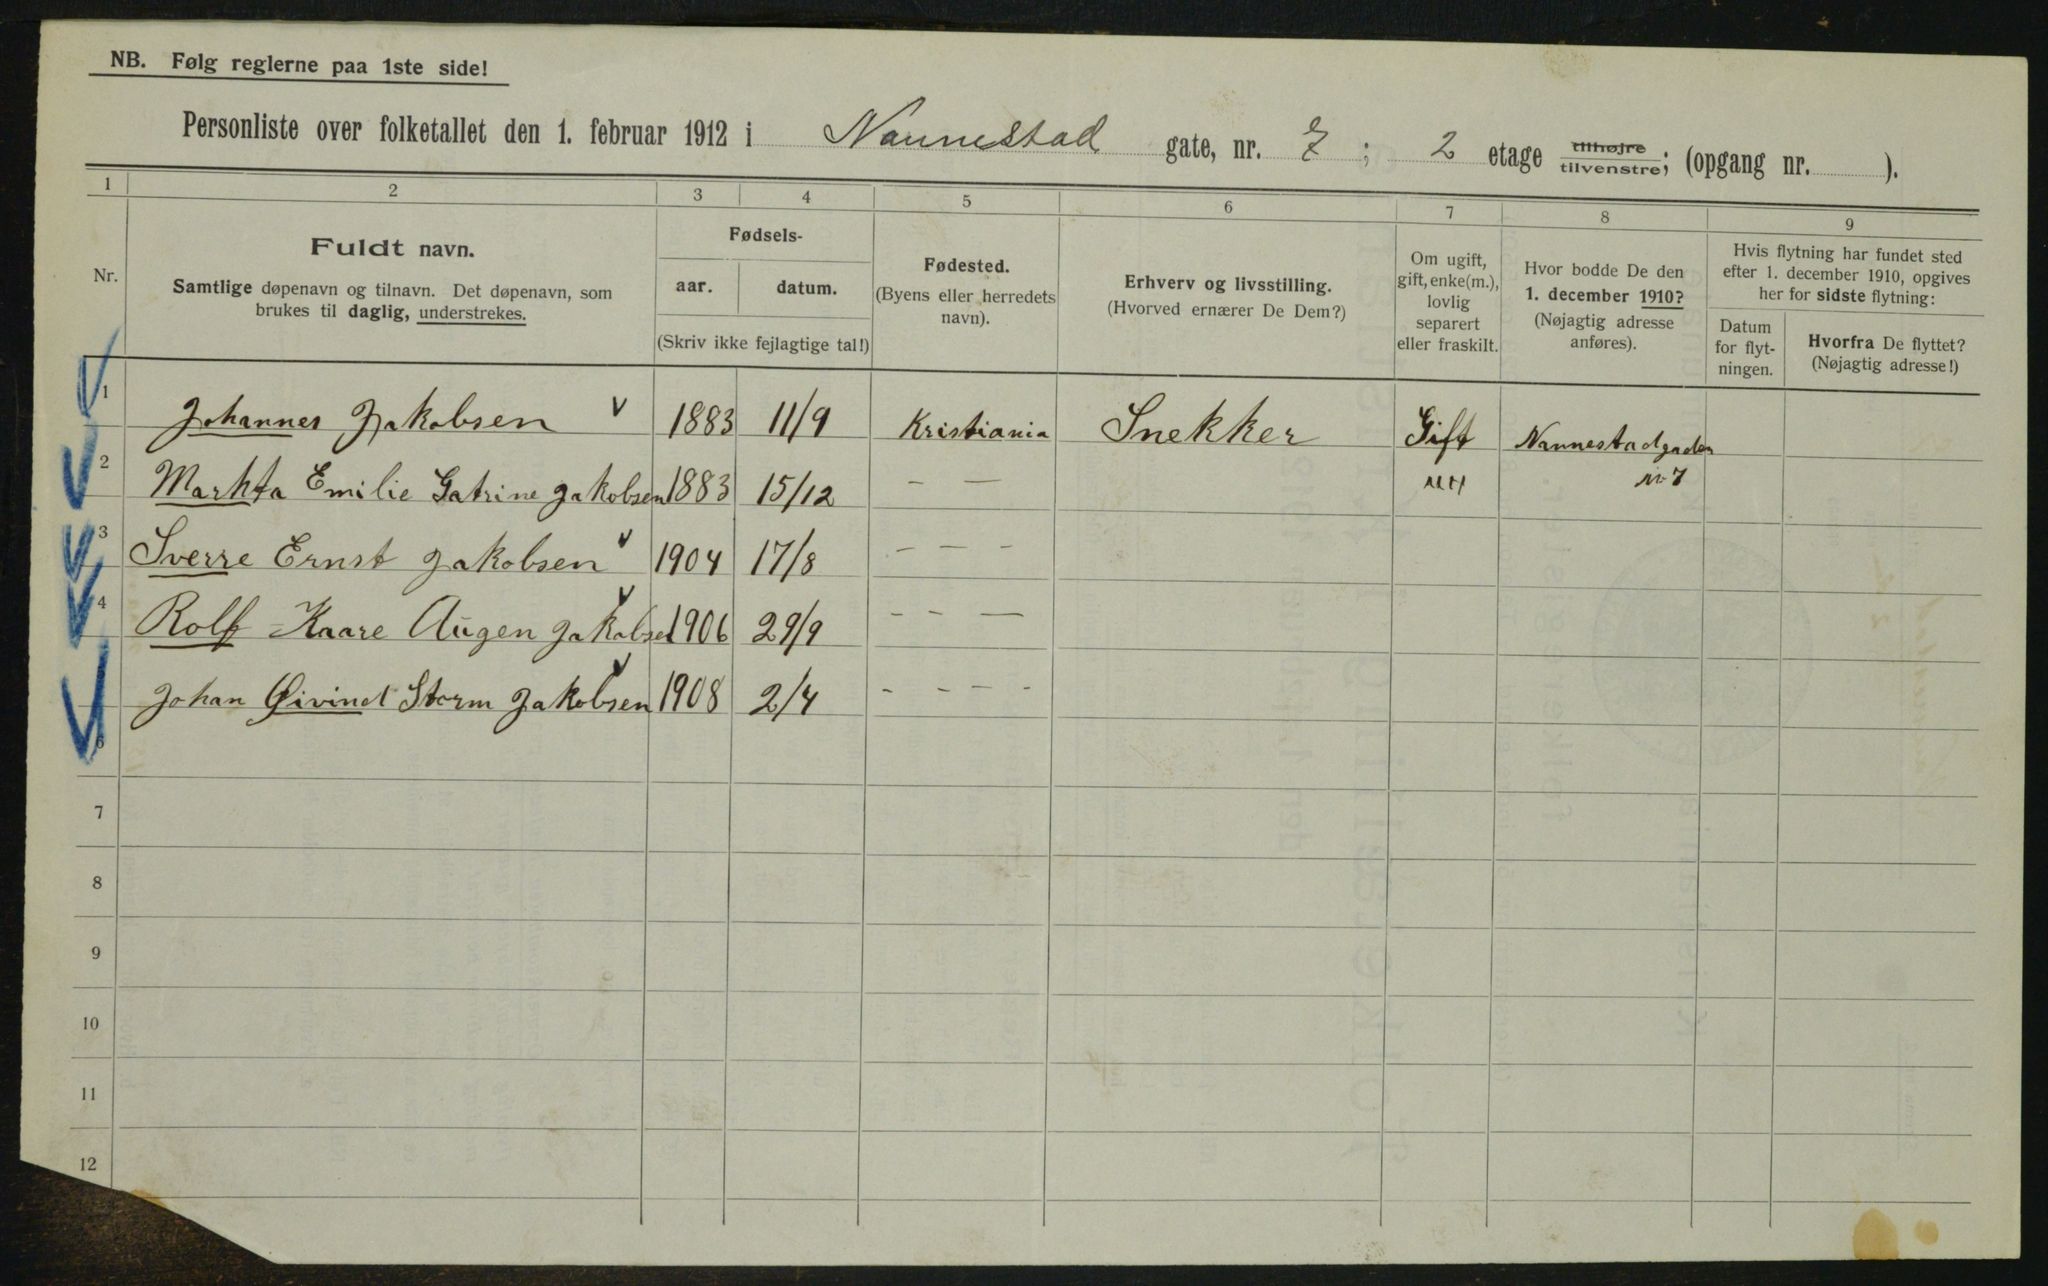 NB. Følg reglerne paa 1ste side!
Personliste over folketallet den 1. februar 1912 i Nannestad gate, nr. 7; 2 etage tilhøjre tilvenstre; (opgang nr. ).
1 2 3 4 5 6 7 8 9
Nr.
Fuldt navn.
Samtlige døpenavn og tilnavn. Det døpenavn, som
brukes til daglig, understrekes.
Fødsels-
aar. datum.
(Skriv ikke fejlagtige tal!)
Fødested.
(Byens eller herredets
navn).
Erhverv og livsstilling.
(Hvorved ernærer De Dem?)
Om ugift,
gift, enke(m.),
lovlig
separert
eller fraskilt.
Hvor bodde De den
1. december 1910?
(Nøjagtig adresse
anføres).
Hvis flytning har fundet sted
efter 1. december 1910, opgives
her for sidste flytning:
Datum
for flyt-
ningen.
Hvorfra De flyttet?
(Nøjagtig adresse!)
1 Johannes Jakobsen 1883 11/9 Kristiania Snekker Gift Nannestadgaden
2 Markta Emilie Gatrine Jakobsen 1883 15/12 — — nr 7
3 Sverre Ernst Jakobsen 1904 17/8 — — -
4 Rolf Kaare Augen Jakobsen 1906 29/9 - - —
Johan Øivind Storm Jakobsen 1908 2/4 - - — -
6
7
8
9
10
11
12